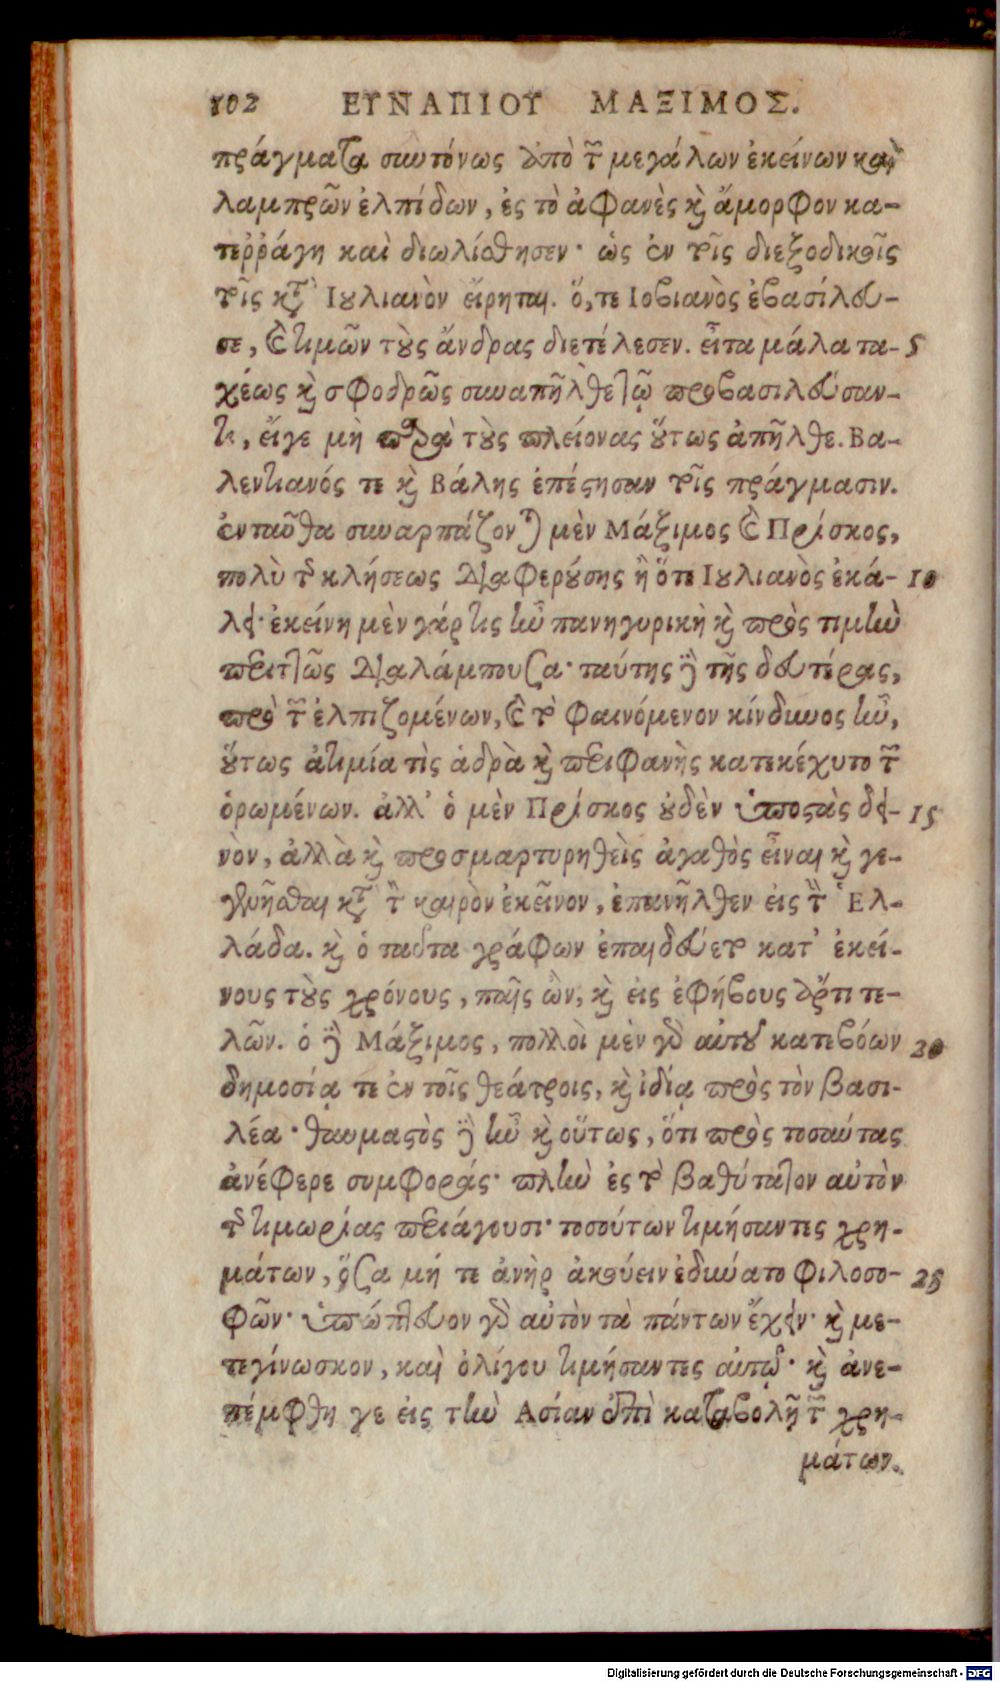 102 ΕΥΝΑΠΙΟΥ ΜΑΞΙΜΟΣ.
πράγματα συντόνως ἀπὸ τῶν μεγάλων ἐκείνων καὶ
λαμπρῶν ἐλπίδων, ἐς τὸ ἀφανὲς καὶ ἄμορφον κα-
τεῤῥάγη καὶ διωλίσθησεν· ὡς ἐν τοῖς διεξοδικοῖς
τοῖς κατὰ Ιουλιανὸν εἴρηται. ὅ,τε Ιοβιανὸς ἐβασίλευ-
σε, καὶ τιμῶν τοὺς ἄνδρας διετέλεσεν. εἶτα μάλα τα- 5
χέως καὶ σφοδρῶς συναπῆλθε τῷ προβασιλεύσαν-
τι, εἴγε μὴ παρὰ τοὺς πλείονας οὕτως ἀπῆλθε. Βα-
λεντιανός τε καὶ Βάλης ἐπέστησαν τοῖς πράγμασιν.
ἐνταῦθα συναρπάζονται μὲν Μάξιμος καὶ Πρίσκος,
πολὺ τῆς κλήσεως διαφερούσης ἢ ὅτε Ιουλιανὸς ἐκά- 10
λει· ἐκείνη μὲν γάρ τις ἦν πανηγυρικὴ καὶ πρὸς τιμὴν
περιττῶς διαλάμπουσα· ταύτης δὲ τῆς δευτέρας,
πρὸ τῶν ἐλπιζομένων, καὶ τὸ φαινόμενον κίνδυνος ἦν,
οὕτως ἀτιμία τὶς ἁδρὰ καὶ περιφανὴς κατεκέχυτο τῶν
ὁρωμένων. ἀλλ' ὁ μὲν Πρίσκος οὐδὲν ὑποστὰς δει- 15
νὸν, ἀλλὰ καὶ προσμαρτυρηθεὶς ἀγαθὸς εἶναι καὶ γε-
γενῆσθαι κατὰ τὸν καιρὸν ἐκεῖνον, ἐπανῆλθεν εἰς τὴν Ἑλ-
λάδα. καὶ ὁ ταῦτα γράφων ἐπαιδεύετο κατ' ἐκεί-
νους τοὺς χρόνους, παῖς ὢν, καὶ εἰς ἐφήβους ἄρτι τε-
λῶν. ὁ δὲ Μάξιμος, πολλοὶ μὲν γὰρ αὐτοῦ κατεβόων 20
δημοσίᾳ τε ἐν τοῖς θεάτροις, καὶ ἰδίᾳ πρὸς τὸν βασι-
λέα· θαυμαστὸς δὲ ἦν καὶ οὕτως, ὅτι πρὸς τοσαύτας
ἀνέφερε συμφοράς· πλὴν ἐς τὸ βαθύτατον αὐτὸν
τῆς τιμωρίας περιάγουσι· τοσούτων τιμήσαντες χρη-
μάτων, ὅσα μή τε ἀνὴρ ἀκούειν ἐδύνατο φιλοσο- 25
φῶν· ὑπώπτευον γὰρ αὐτὸν τὰ πάντων ἔχειν· καὶ με-
τεγίνωσκον, καὶ ὀλίγου τιμήσαντες αὐτῷ· καὶ ἀνε-
πέμφθη γε εἰς τὴν Ασίαν ἐπὶ καταβολῇ τῶν χρη-
μάτων.
Digitalisierung gefördert durch die Deutsche Forschungsgemeinschaft - DFG